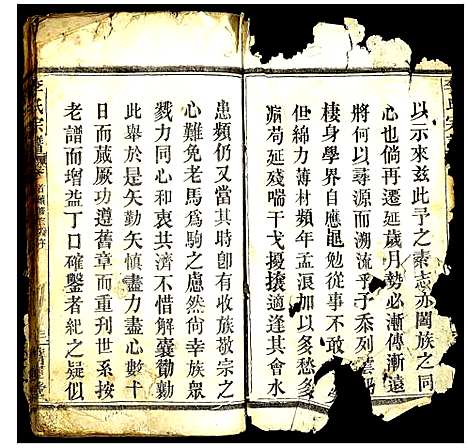 以示來茲此予之素志亦闔族之同
心也倘再遷延歲月勢必漸傳漸遠
將何以尋源而溯流乎予忝列
棲身學界自應黽勉從事不敢
但綿力薄材頻年孟浪加以多愁多
苟延殘喘干戈擾攘適逢其會水
患頻仍又當其時卽有收族敬宗之
心難免老馬爲駒之慮然尚幸族眾
戮力同心和衷共濟不惜解囊勷勷
此舉於是矢勤矢慎盡力盡心數十
日而蕆厥功遵舊章而重刊世系按
老譜而增益丁口確鑿者紀之疑似
李氏宗譜